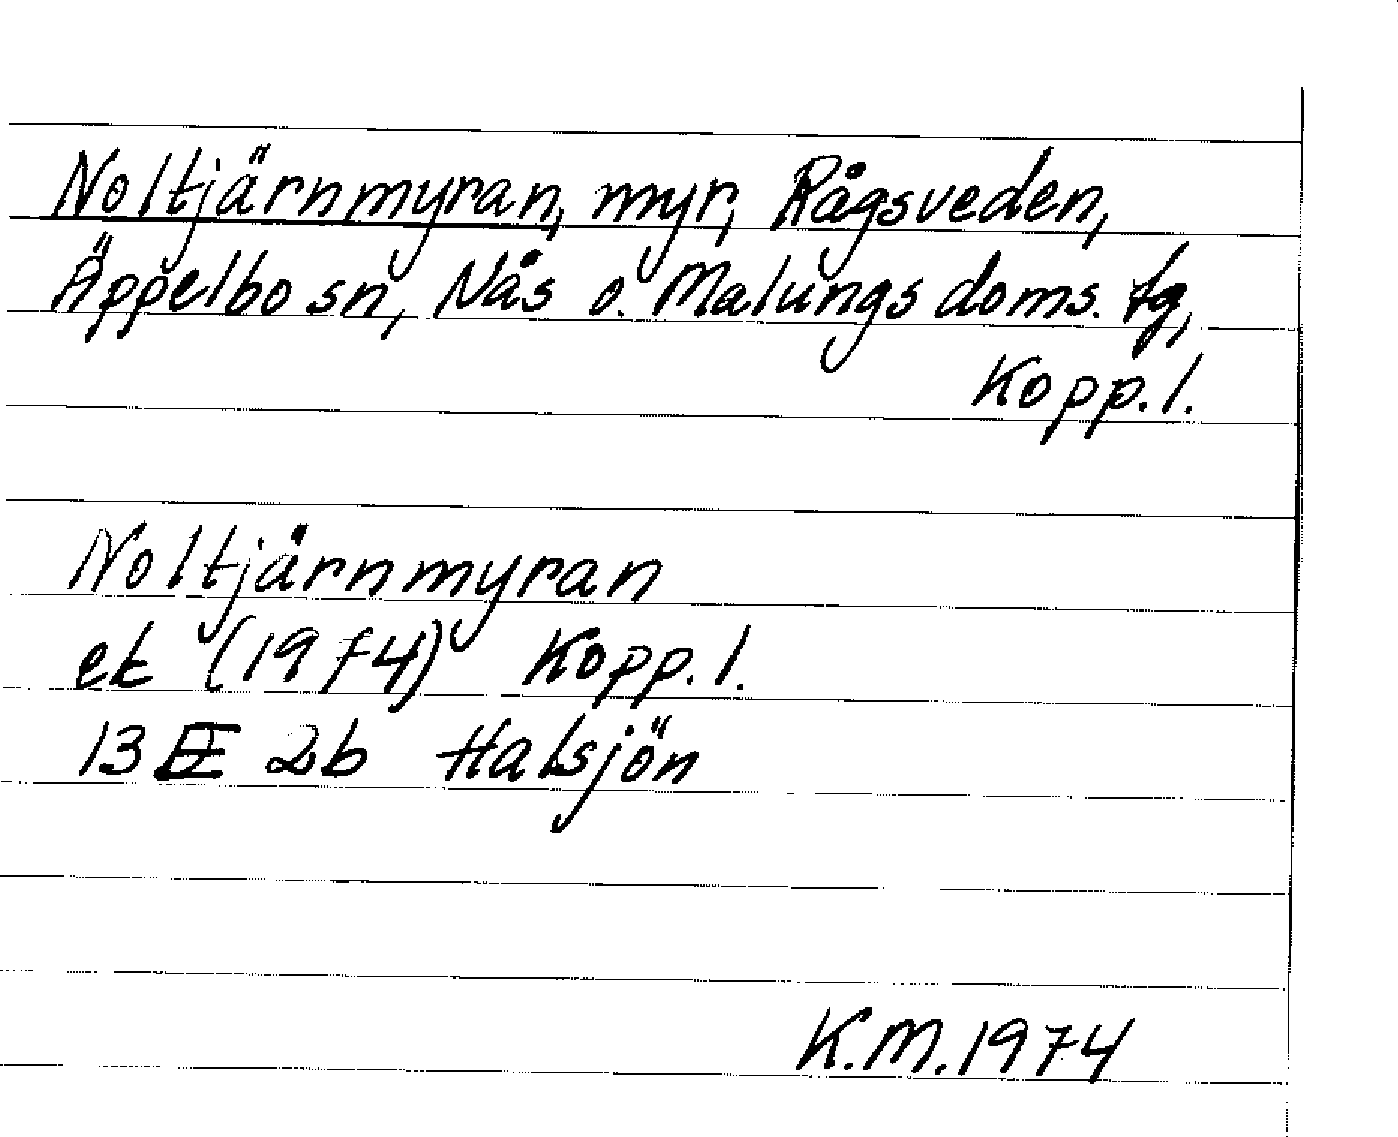 Noltjärnmyran, myr, Rågsveden,
Äppelbo sn, Nås o. Malungs doms. tg,
Kopp. l.
Noltjärnmyran
ek (1974) Kopp. l.
13 E 2b Halsjön
K.M. 1974